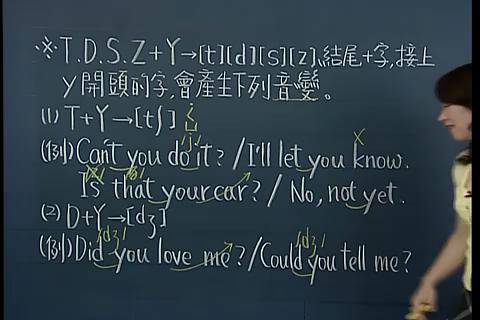 ※T.D.S.Z+Y→[t][d][s][z]結尾+字,接上
y開頭的字,會產生下列音變。
(1) T+Y→[tʃ]
(例) Can't you do it? / I'll let you know.
Is that your car? / No, not yet.
(2) D+Y→[dʒ]
(例) Did you love me? / Could you tell me?